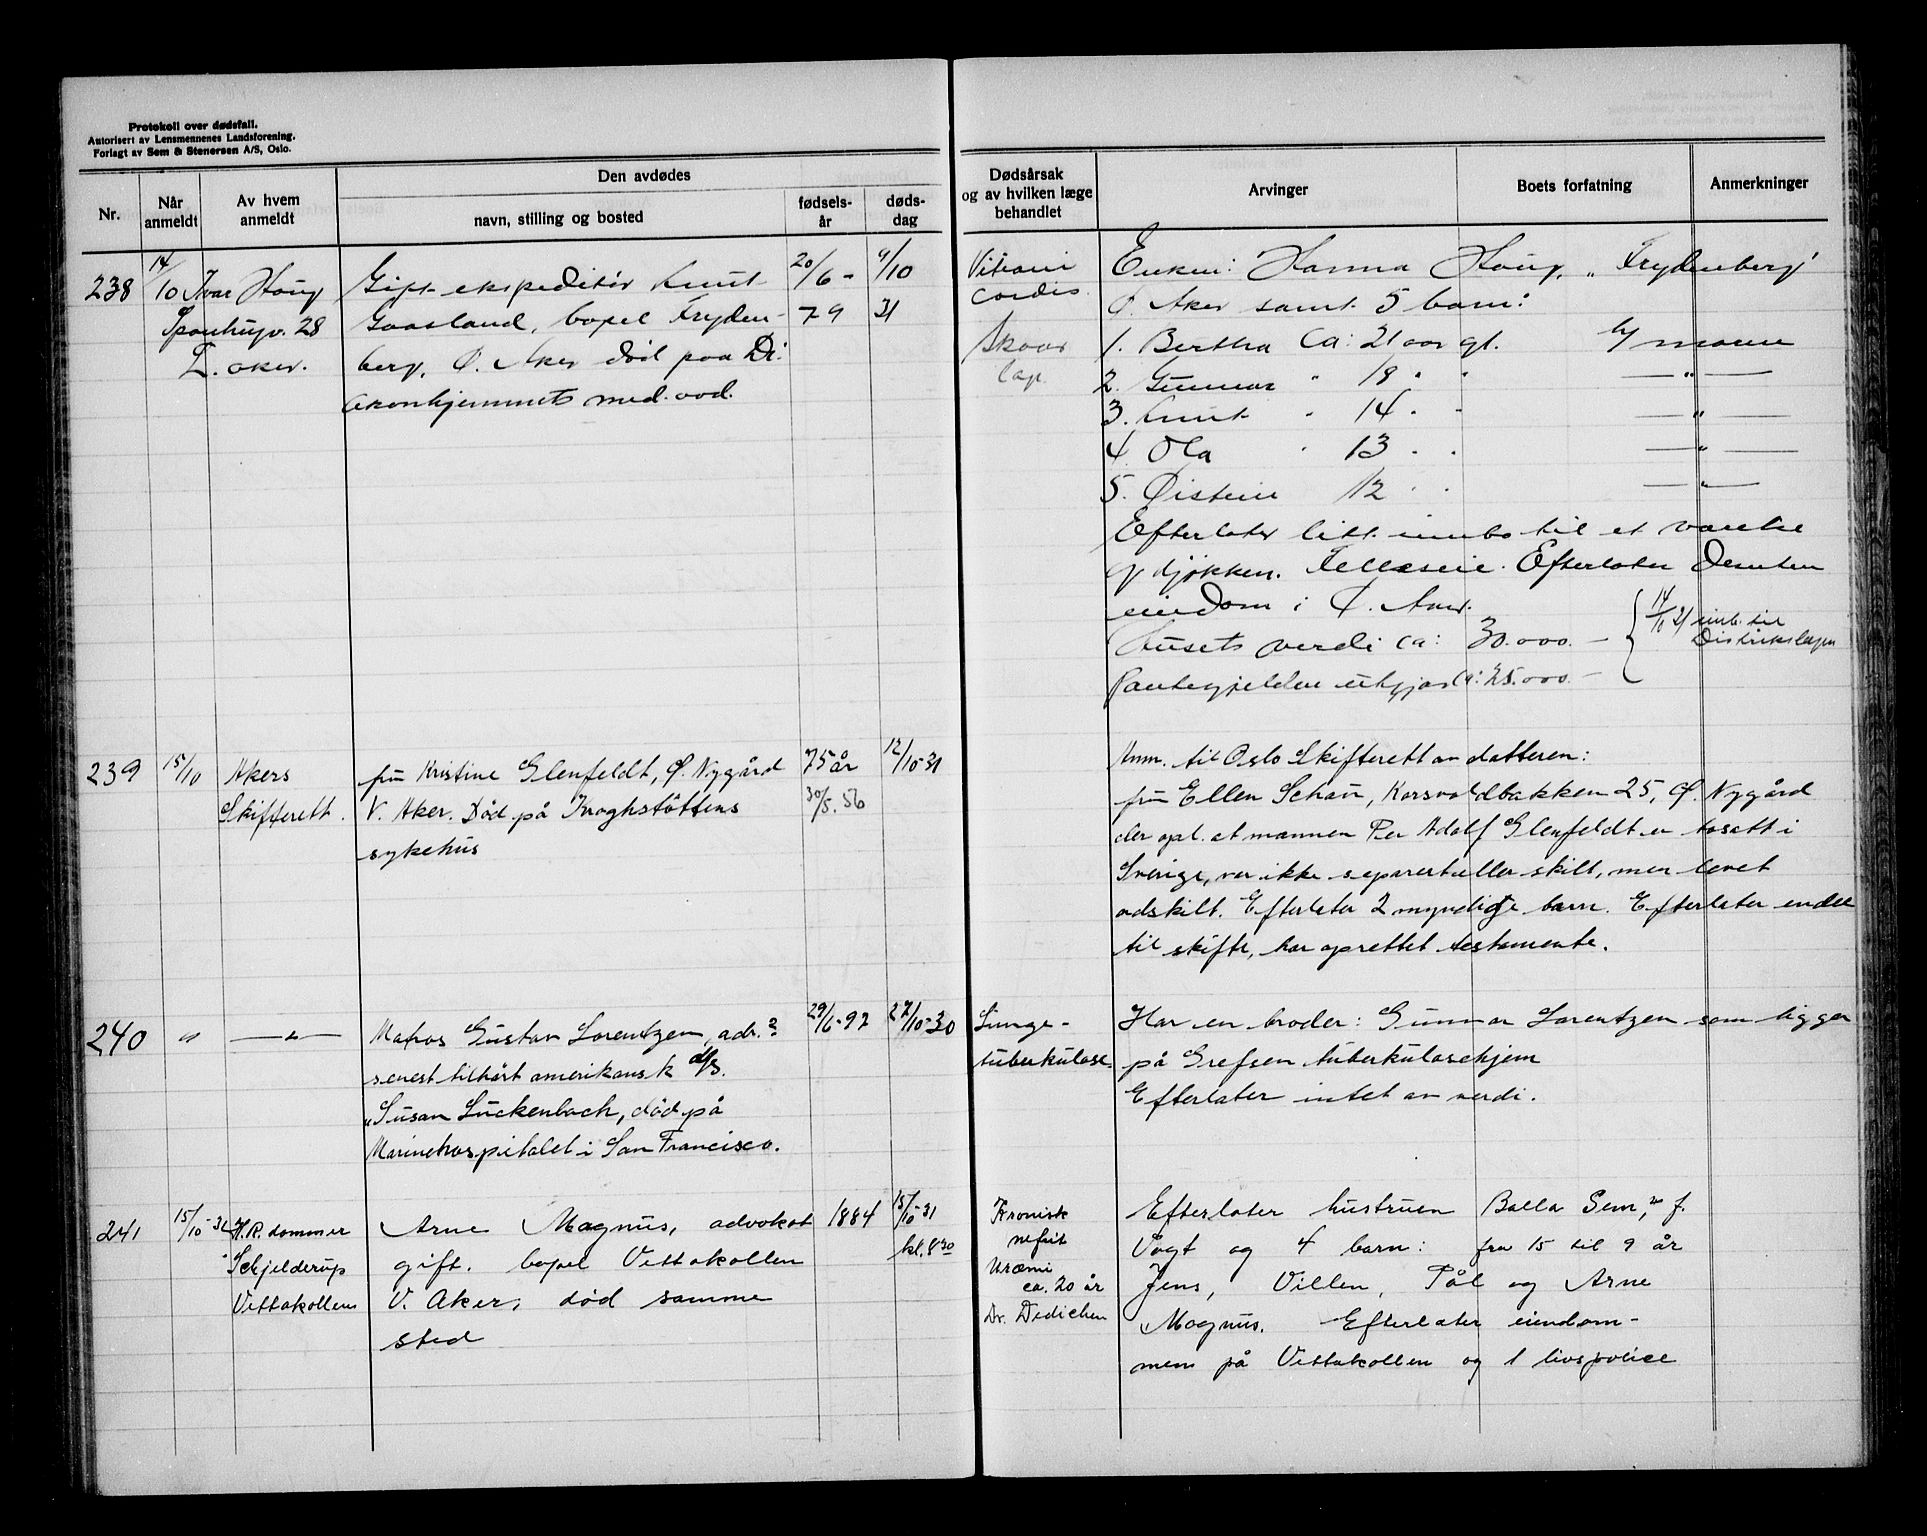 Protokoll over dødsfall.
Autorisert av Lensmennenes Landsforening.
Forlagt av Sem & Stenersen A/S, Oslo.
Nr.
Når anmeldt
Av hvem anmeldt
Den avdødes
navn, stilling og bosted
fødsels-år
døds-dag
Dødsårsak og av hvilken læge behandlet
Arvinger
Boets forfatning
Anmerkninger
238
14/10
Ivar Haug
28
Ø. aker.
Gift ekspeditør Knut
Gaasland, bopel Fryden-
berg, Ø. Aker død paa Di-
akonhjemmets med. avd.
20/6-
79
9/10
31
Vitium
cordis
Enken: Hanna Haug, "Frydenberg"
Ø. Aker samt 5 barn:
1. Bertha Ca: 21 aar gl. h/ moren
2. Gunnar " 18 " " — " —
3. Knut " 14 " " — " —
4. Ola " 13 " " — " —
5. Øistein 12 " " — " —
Efterlater litt innbo til et værelse
og kjøkken. Felleseie. Efterlater Desuten
eiendom i Ø. Aker.
Husets verdi ca: 30.000.-
Pantegjelden utgjør ca: 25.000.-
14/10 31 innb. til
Distriktslægen
239
15/10
Akers
Skifterett.
fru Kristine Glenfeldt, Ø. Nygård
V. Aker. Død på Kroghstøttens
sykehus
75 år
30/5. 56
12/10-31
Anm. til Oslo Skifterett av datteren:
fru Ellen Schau, Korsvoldbakken 25, Ø. Nygård
der opl. at mannen Per Adolf Glenfeldt er bosatt i
Sverige, var ikke separert eller skilt, men levet
adskilt. Efterlater 2 myndige barn. Efterlater endel
til skifte, har oprettet testamente.
240
"
— " —
Matros Gustav Lorentzen, adr.?
senest tilhørt amerikansk d/s.
"Susan Luckenbach, død på
Marinehospitalet i San Francisco.
29/6-97
27/10-30
Lunge-
tuberkulose.
Har en broder: Gunnar Lorentzen som ligger
på Grefsen tuberkulosehjem
Efterlater intet av verdi.
241
15/10-31
H.R. dommer
Schjelderup
Vettakollen
Arne Magnus, advokat
gift. bopel Vettakollen
V. Aker, død samme
sted
1884
15/10-31
kl. 8 30
Kronisk
nefrit
Uræmi
ca. 20 år
Dr. Dedichen
Efterlater hustruen Balla Sem, f.
Vogt og 4 barn: fra 15 til 9 år
Jens, Villen, Pål og Arne
Magnus. Efterlater eiendom-
men på Vettakollen og 1 livspolice